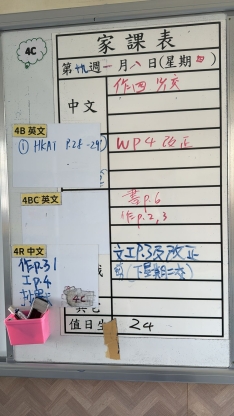 4C
家課表
第十九週一月八日(星期四)
中文
作四 完
4B 英文
① HKAT P.28-29
WP4 改正
4BC 英文
書p.6
作p.2,3
4R 中文
作p.31
工p.4
文工P.3及改正
(下星期二交)
4C
其他
值日生
24